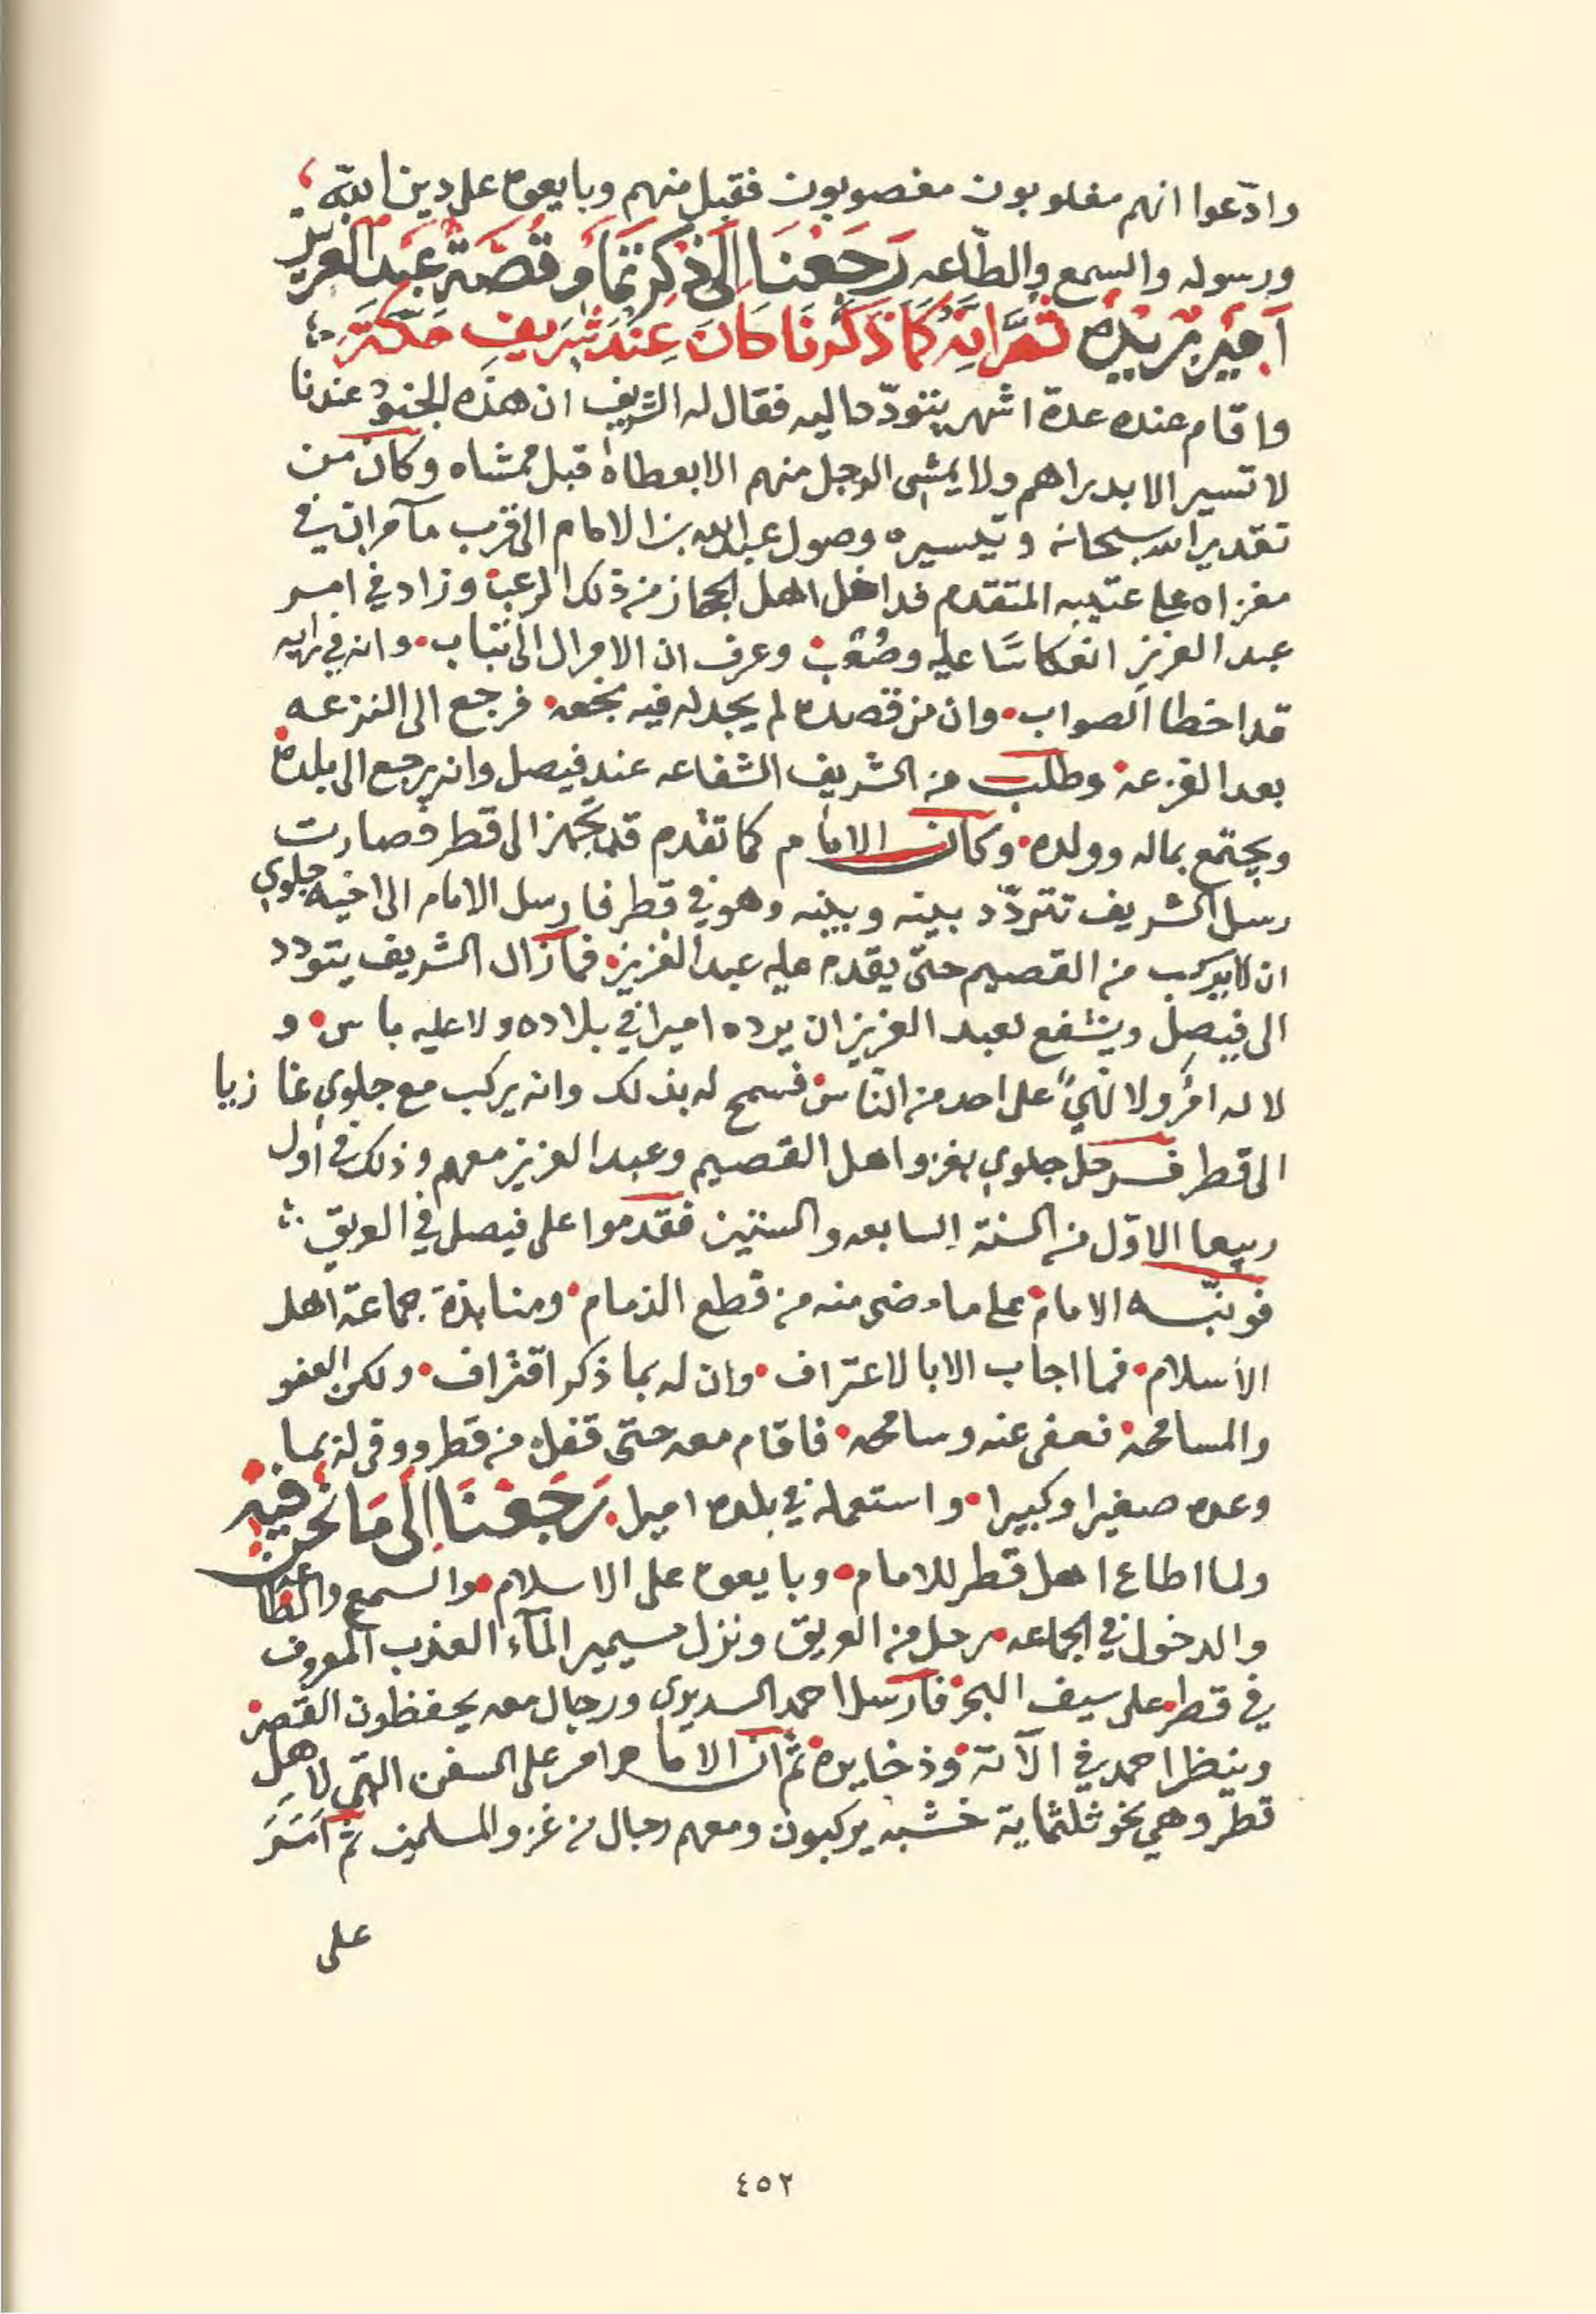 وادّعوا انهم مغلوبون مغصوبون فقبل منهم وبايعوه على دين الله
ورسوله والسمع والطّاعه رَجَعْنَا إلى ذكرِ تمام قصّة عبد العزيز
أمير بريده ثمَّ انه كما ذكرنا كانَ عِند شريف مكة
واقام عنده عدة اشهر يتودّد اليه فقال له الشريف ان هذه الجنود عندنا
لا تسير الا بدراهم ولا يمشى الرجل منهم الا بعطاه قبل ممشاه وكان من
تقدير الله سبحانه وتيسيره وصول عبد الله بن الامام الى قرب مآمران في
مغزاه على عتيبه المتقدم فداخل اهل الحجاز من ذلك الرعب وزاد في امر
عبد العزيز انعكاسًا عليه وصُعُب وعرف ان الامر ال الى تباب وانه في رايه
قد اخطا الصواب وان من قصده لم يجد له فيه نجعه فرجع الى النزعه
بعد الفزعه وطلب من الشريف الشفاعه عند فيصل وانه يرجع الى بلده
ويجتمع بماله وولده وكان الامام كما تقدم قد تجهز الى قطر فصارت
رسل الشريف تتردّد بينه وبينه وهو في قطر فارسل الامام الى اخيه جلوي
ان لا يركب من القصيم حتى يقدم عليه عبد العزيز فما زال الشريف يتودد
الى فيصل ويشفع لعبد العزيز ان يرده اميرا في بلاده ولا عليه باس و
لا له امرٌ ولا نهيٌ على احد من النّاس فسمح له بذلك وانه يركب مع جلوي غازيا
الى قطر فرحل جلوي بغزو اهل القصيم وعبد العزيز معهم وذلك في أول
ربيعا الاوّل من السنة السابعه والستين فقدموا على فيصل في العريق
فوبّخه الامام على ما مضى منه من قطع الذمام ومنابذة جماعة اهل
الأسلام فما اجاب الا بالاعتراف وان له بما ذكر اقتراف ولكن العفو
والمسامحه فعفى عنه وسامحه فاقام معه حتى قفل من قطر ووفى له بما
وعده صغيرا وكبيرا واستعمله في بلده اميرا رَجَعْنَا إلى مَا نحن فيه
ولما اطاع اهل قطر للامام وبايعوه على الاسلام والسمع والطاعة
والدخول في الجماعه رحل من العريق ونزل مسيمير المآء العذب المعروف
في قطر على سيف البحر فارسل احمد السديري ورجال معه يحفظون القصر
وينظر احمد في الآته وذخايره ثمّ ان الامام امر على السفن التي لاهل
قطر وهي نحو ثلثماية خشبه يركبون ومعهم رجال من غزو المسلمين ثم أمَرَ
على
٤٥٢